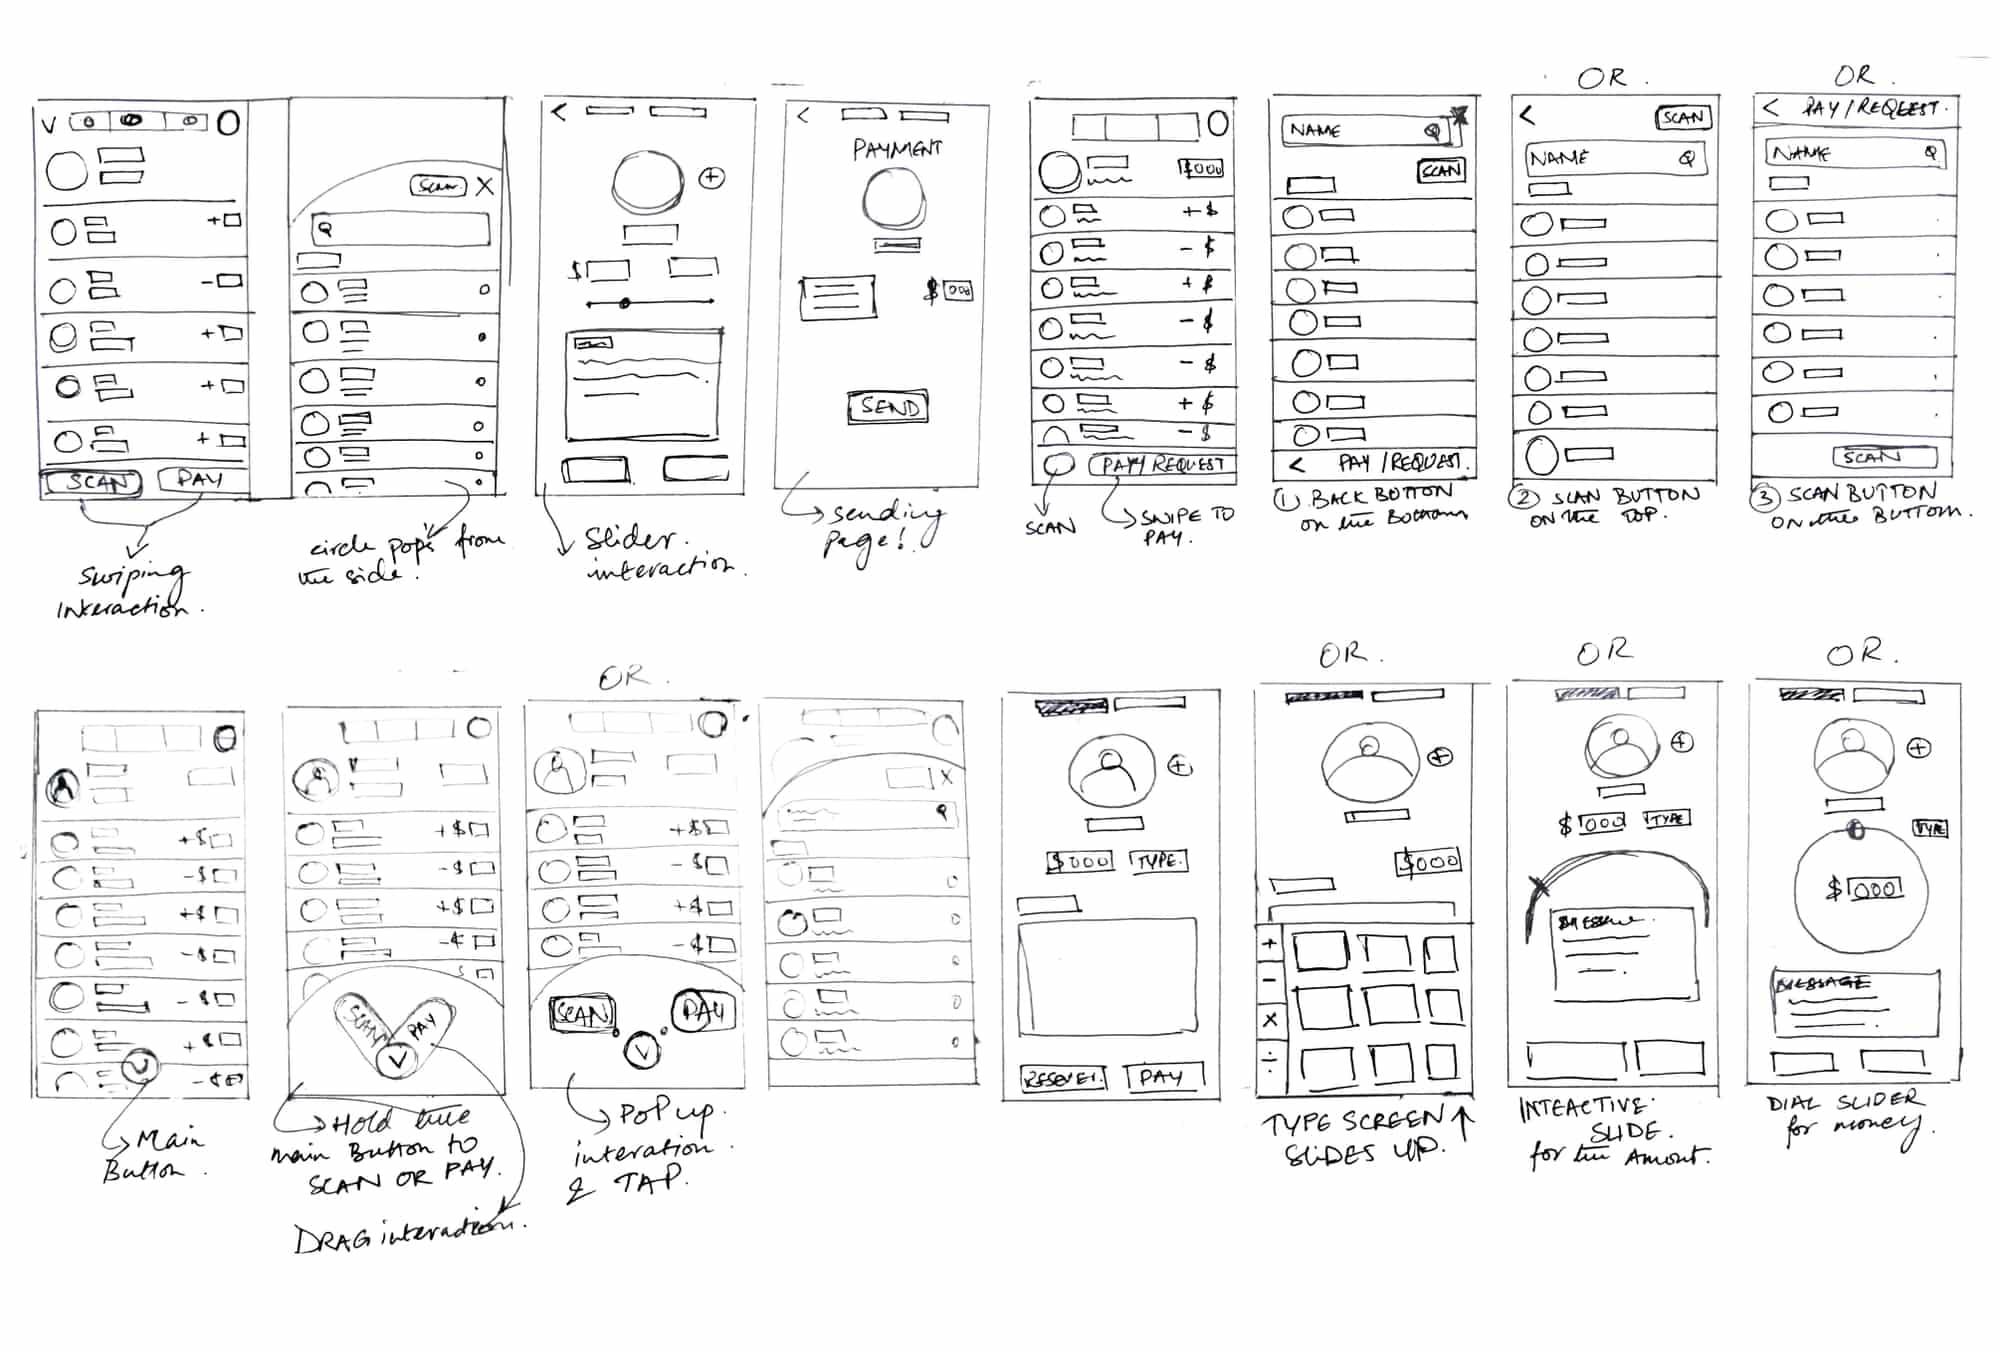 OR.
OR.
V
+
-
+
+
+
SCAN
PAY
Swiping
Interaction.
Scan
X
circle pops from
the side.
<
$
+
Slider.
interaction.
<
PAYMENT
$ 000
SEND
Sending
page!
$000
+ $
- $
+ $
- $
- $
+ $
- $
PAY/REQUEST
SCAN
SWIPE TO
PAY.
NAME
SCAN
< PAY/REQUEST.
① BACK BUTTON
on the Bottom
<
SCAN
NAME
② SCAN BUTTON
ON the TOP.
< PAY/REQEEST.
NAME
SCAN
③ SCAN BUTTON
ON the BUTTOM.
OR.
OR.
OR
OR.
+$
-$
+$
-$
-$
+$
-$
V
Main
Button.
+$
-$
+$
-$
$
SCAN
PAY
V
Hold the
main Button to
SCAN OR PAY.
DRAG interaction.
+$
-$
+$
-$
SCAN
PAY
V
POP up.
interation
& TAP.
X
+
$000
TYPE.
PAY
+
$000
+
-
X
÷
TYPE SCREEN
SLIDES UP.
+
$ 000
TYPE
INTEACTIVE
SLIDE.
for the Amount.
+
TYPE
$ 000
MESSAGE
DIAL SLIDER
for money.